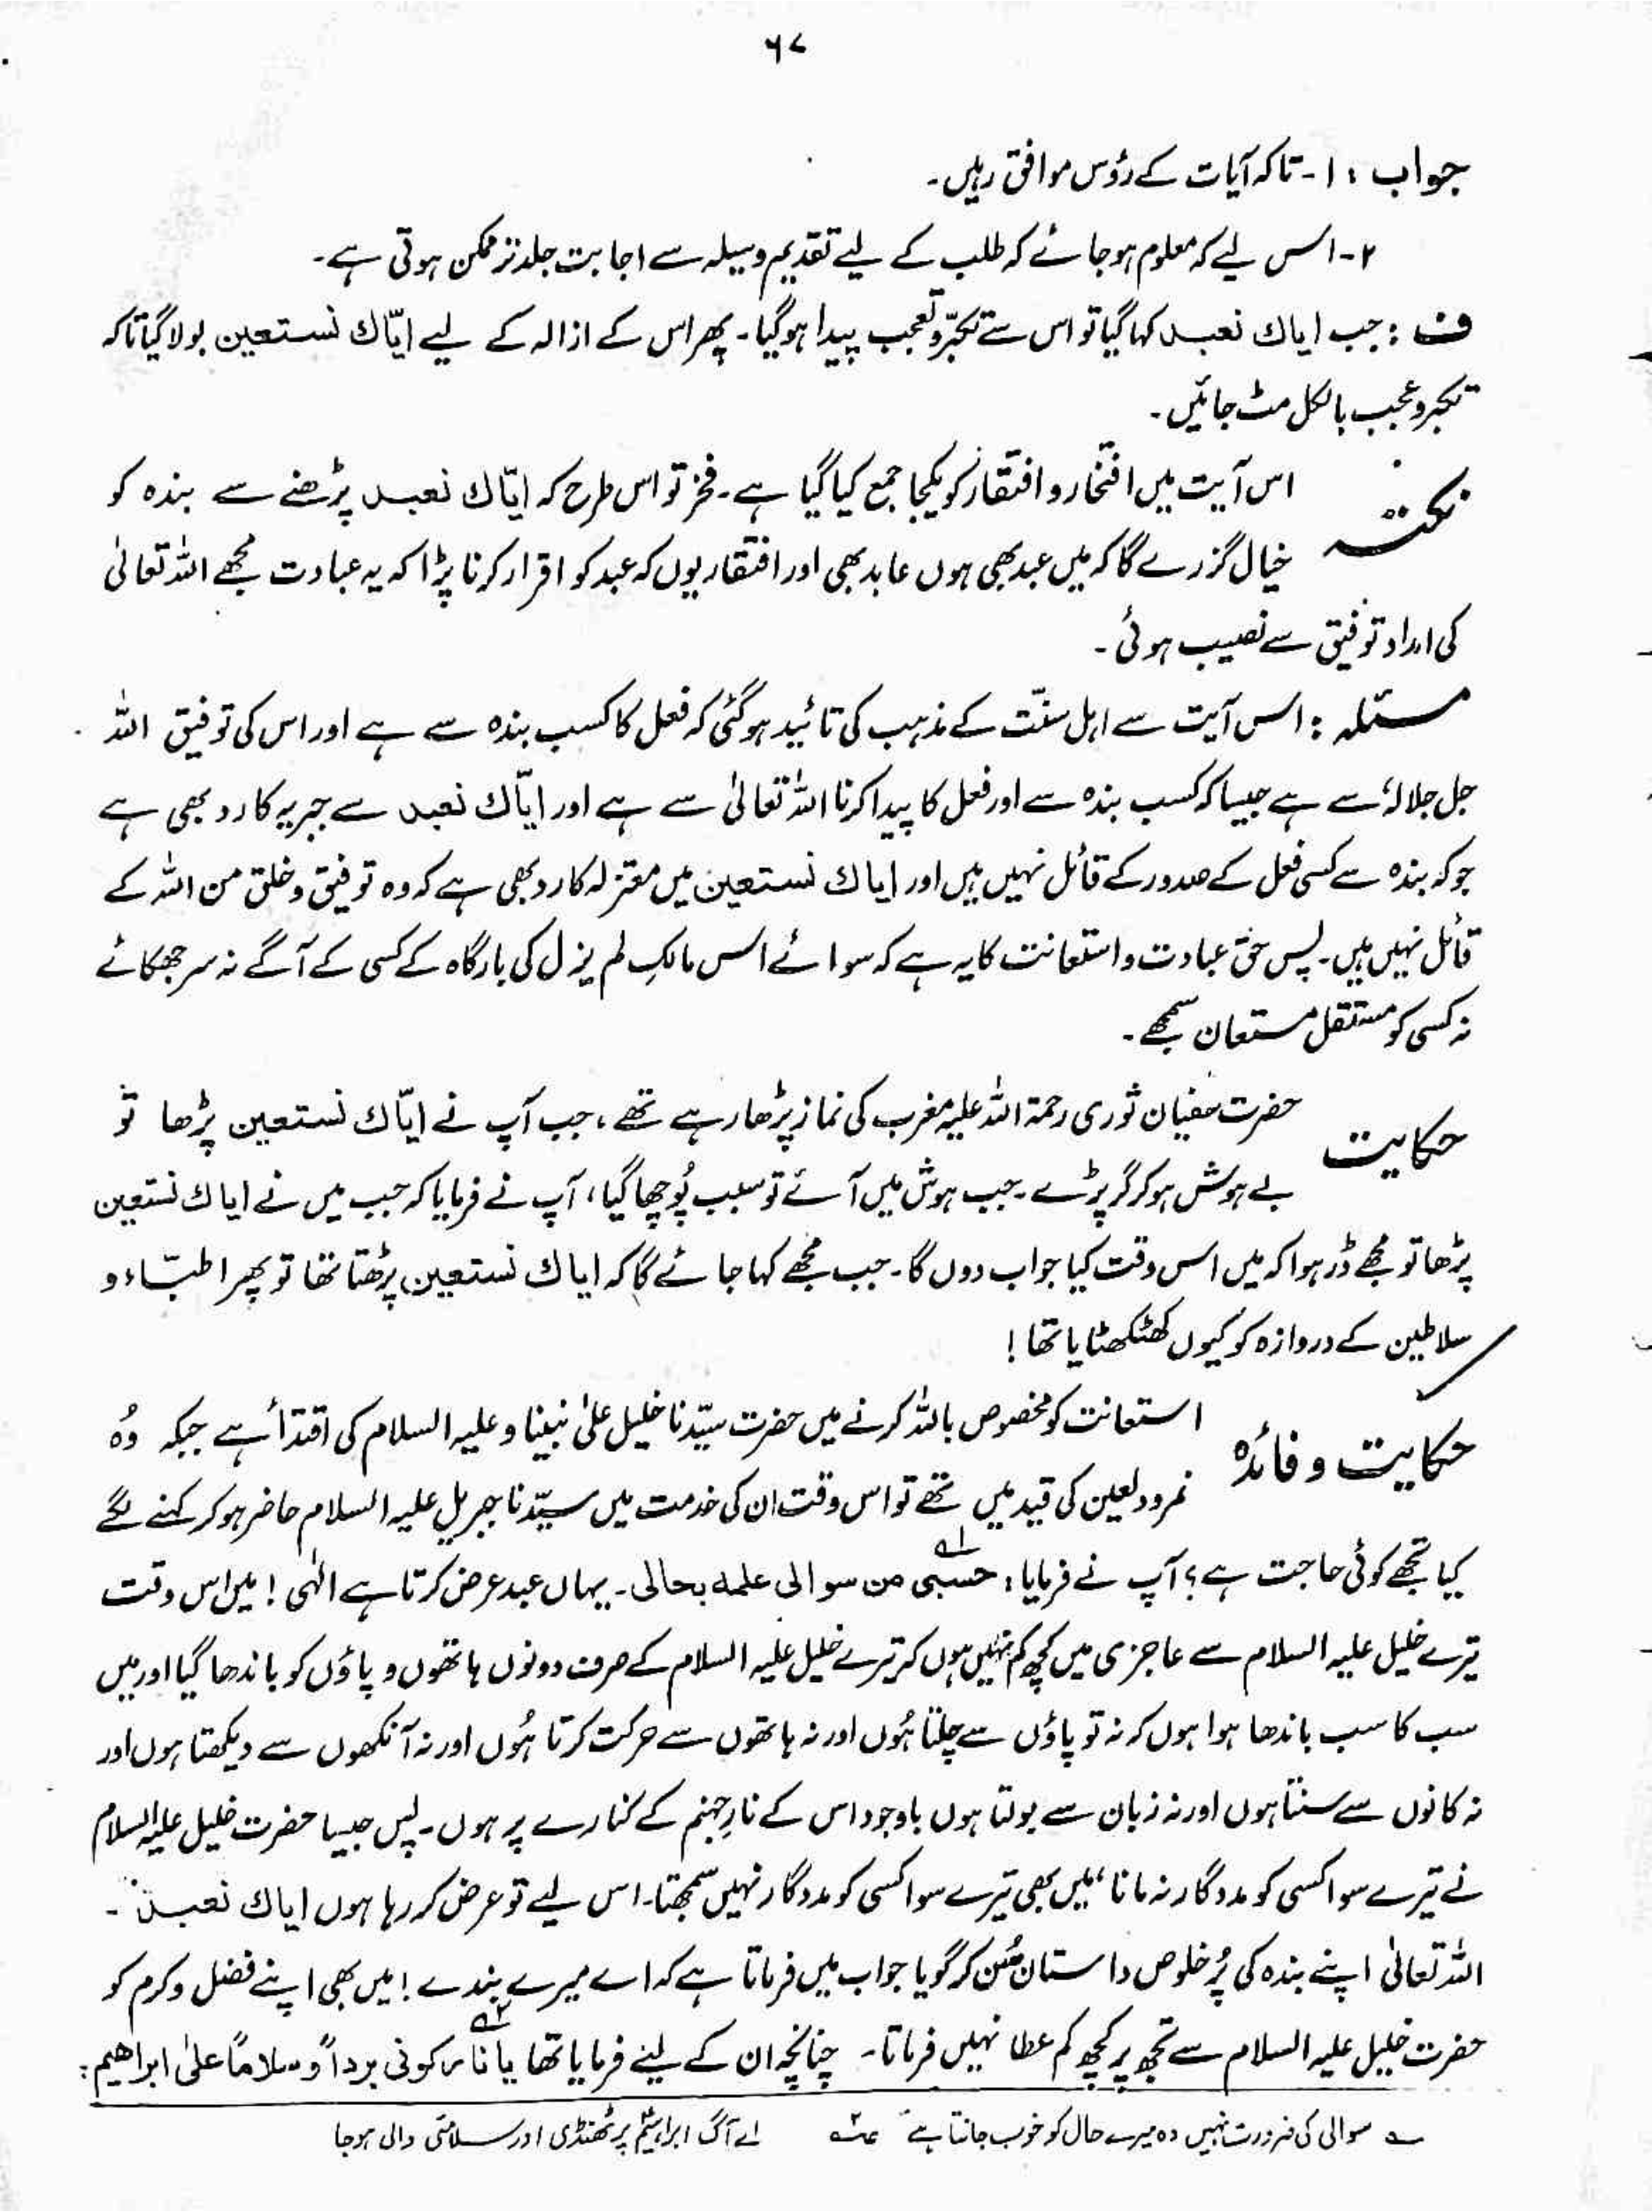 ۶۷
جواب : ۱- تاکہ آیات کے رؤس موافق رہیں۔
۲- اس لیے کہ معلوم ہو جائے کہ طلب کے لیے تقدیم وسیلہ سے اجابت جلد تر ممکن ہوتی ہے۔
ف : جب ایاك نعبد کہا گیا تو اس سے تکبّر و تعجب پیدا ہو گیا۔ پھر اس کے ازالہ کے لیے ایّاك نستعین بولا گیا تاکہ
تکبر و عجب بالکل مٹ جائیں۔
نکتہ اس آیت میں افتخار و افتقار کو یکجا جمع کیا گیا ہے۔ فخر تو اس طرح کہ ایّاك نعبد پڑھنے سے بندہ کو
خیال گزرے گا کہ میں عبد بھی ہوں عابد بھی اور افتقار یوں کہ عبد کو اقرار کرنا پڑا کہ یہ عبادت مجھے اللہ تعالیٰ
کی امداد توفیق سے نصیب ہوئی۔
مسئلہ : اس آیت سے اہل سنّت کے مذہب کی تائید ہو گئی کہ فعل کا کسب بندہ سے ہے اور اس کی توفیق اللہ
جل جلالہٗ سے ہے جیسا کہ کسب بندہ سے اور فعل کا پیدا کرنا اللہ تعالیٰ سے ہے اور ایّاك نعبد سے جبریہ کا رد بھی ہے
جو کہ بندہ سے کسی فعل کے صدور کے قائل نہیں ہیں اور ایاك نستعین میں معتزلہ کا رد بھی ہے کہ وہ توفیق و خلق من اللہ کے
قائل نہیں ہیں۔ پس حق عبادت و استعانت کا یہ ہے کہ سوائے اس مالکِ لم یزل کی بارگاہ کے کسی کے آگے نہ سر جھکائے
نہ کسی کو مستقل مستعان سمجھے۔
حکایت حضرت سفیان ثوری رحمۃ اللہ علیہ مغرب کی نماز پڑھا رہے تھے، جب آپ نے ایّاك نستعین پڑھا تو
بے ہوش ہو کر گر پڑے۔ جب ہوش میں آئے تو سبب پُوچھا گیا، آپ نے فرمایا کہ جب میں نے ایاك نستعین
پڑھا تو مجھے ڈر ہوا کہ میں اس وقت کیا جواب دوں گا۔ جب مجھے کہا جائے گا کہ ایاك نستعین پڑھتا تھا تو پھر اطبّاء و
سلاطین کے دروازہ کو کیوں کھٹکھٹایا تھا !
حکایت و فائدہ استعانت کو مخصوص باللہ کرنے میں حضرت سیّدنا خلیل علیٰ نبینا و علیہ السلام کی اقتدأ ہے جبکہ وُہ
نمرود لعین کی قید میں تھے تو اس وقت ان کی خدمت میں سیّدنا جبریل علیہ السلام حاضر ہو کر کہنے لگے
کیا تجھے کوئی حاجت ہے ؟ آپ نے فرمایا : حسبی من سوالی علمه بحالی۱؎۔ یہاں عبد عرض کرتا ہے الٰہی ! میں اس وقت
تیرے خلیل علیہ السلام سے عاجزی میں کچھ کم نہیں ہوں کہ تیرے خلیل علیہ السلام کے صرف دونوں ہاتھوں و پاؤں کو باندھا گیا اور میں
سب کا سب باندھا ہوا ہوں کہ نہ تو پاؤں سے چلتا ہُوں اور نہ ہاتھوں سے حرکت کرتا ہُوں اور نہ آنکھوں سے دیکھتا ہوں اور
نہ کانوں سے سنتا ہوں اور نہ زبان سے بولتا ہوں باوجود اس کے نارِ جہنم کے کنارے پر ہوں۔ پس جیسا حضرت خلیل علیہ السلام
نے تیرے سوا کسی کو مددگار نہ مانا ، میں بھی تیرے سوا کسی کو مددگار نہیں سمجھتا۔ اس لیے تو عرض کر رہا ہوں ایاك نعبد۔
اللہ تعالیٰ اپنے بندہ کی پُر خلوص داستان سُن کر گویا جواب میں فرماتا ہے کہ اے میرے بندے ! میں بھی اپنے فضل و کرم کو
حضرت خلیل علیہ السلام سے تجھ پر کچھ کم عطا نہیں فرماتا۔ چنانچہ ان کے لیے فرمایا تھا یا نار۲؎ کونی برداً و سلاماً علیٰ ابراهیم :
۱؎ سوالی کی ضرورت نہیں وہ میرے حال کو خوب جانتا ہے ۲؎ اے آگ ابراہیمؑ پر ٹھنڈی اور سلامتی والی ہو جا